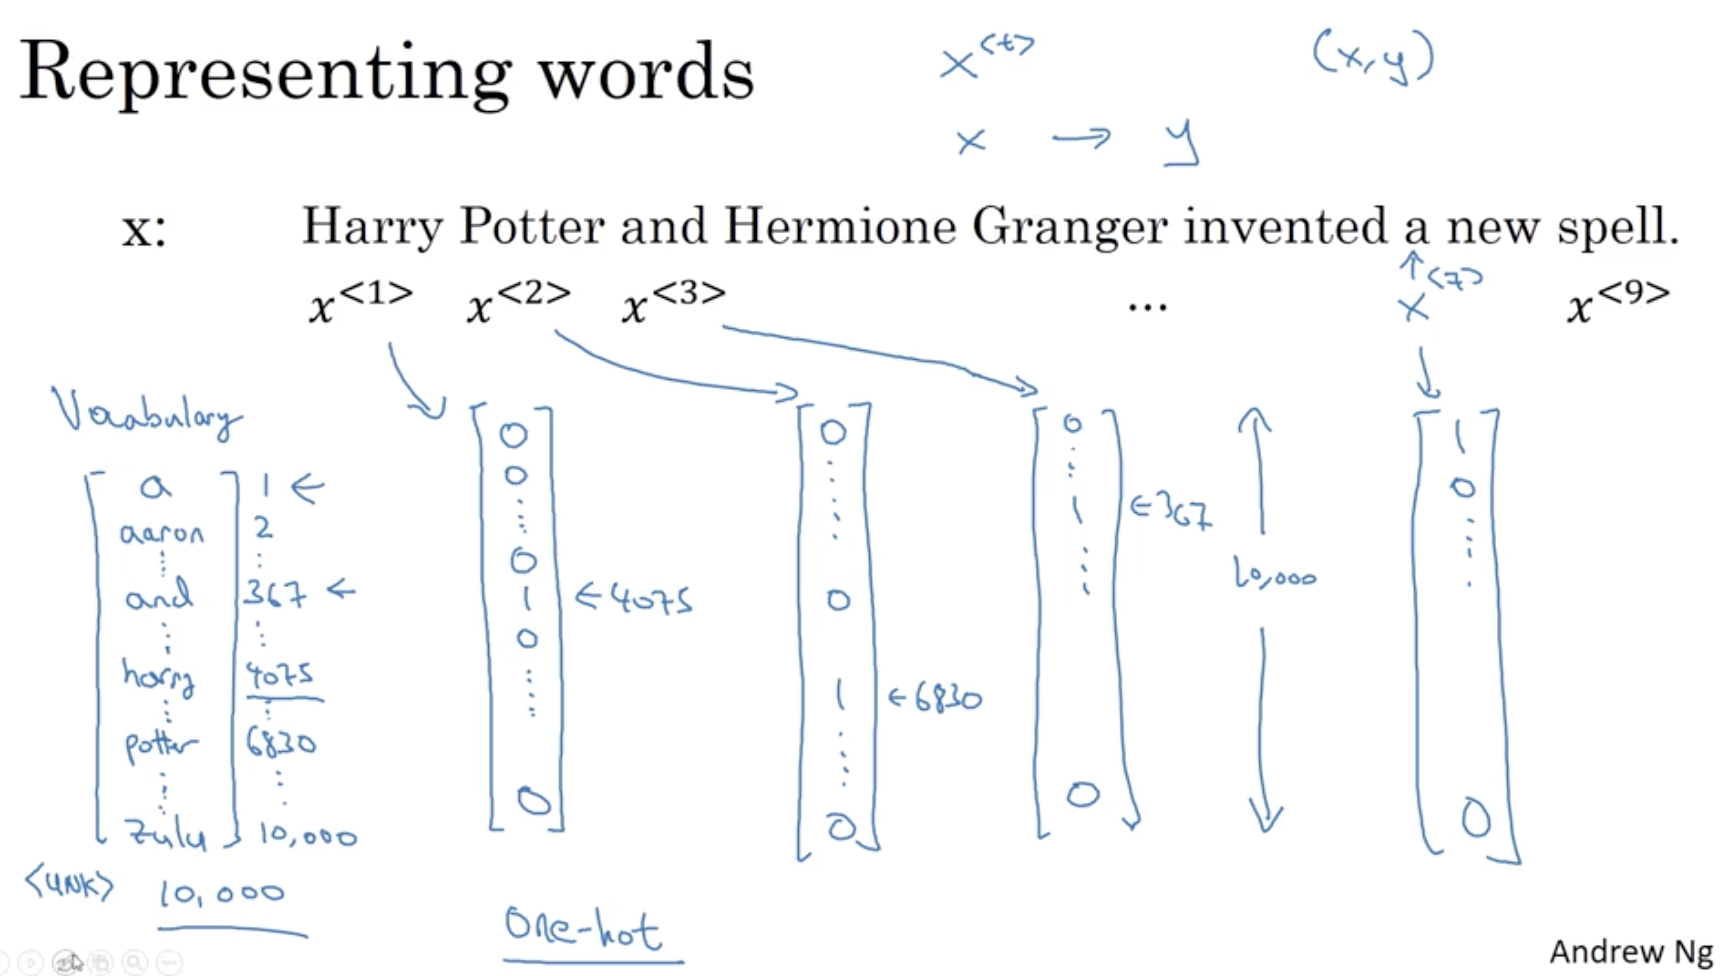 Representing words
x<t> (x,y)
x → y
x: Harry Potter and Hermione Granger invented a new spell.
x<1> x<2> x<3> ... x<7> x<9>
Vocabulary
a 1 ←
aaron 2
and 367 ←
harry 4075
potter 6830
Zulu 10,000
<UNK> 10,000
0
0
0
1 ← 4075
0
0
0
0
1 ← 6830
0
0
1 ← 367
0
10,000
1
0
0
One-hot
Andrew Ng